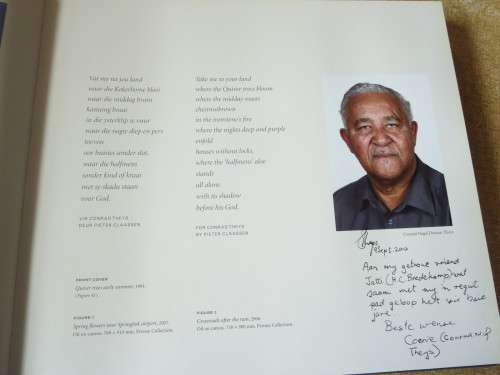 Vat my na jou land
waar die Kokerbome bloei
waar die middag bruin
kaneang braai
in die ysterklip se vuur
waar die nagte diep en pers
toevou
oor huisies sonder slot,
waar die halfmens
sonder kind of kraai
met sy skadu staan
voor God.
VIR CONRAD THEYS
DEUR PIETER CLAASSEN
Take me to your land
where the Quiver trees bloom
where the midday roasts
cinnamonbrown
in the ironstone's fire
where the nights deep and purple
enfold
houses without locks,
where the 'halfmens' aloe
stands
all alone
with its shadow
before his God.
FOR CONRAD THEYS
BY PIETER CLAASSEN
FRONT COVER
Quiver trees early summer, 1993.
(Figure 41)
FIGURE 1
Spring flowers near Springbok airport, 2007.
Oil on canvas, 760 x 410 mm, Private Collection.
FIGURE 2
Crossroads after the rain, 2006
Oil on canvas, 710 x 380 mm, Private Collection.
Conrad Nagel Doman Theys
Sept. 2012
Aan my getroue vriend
Jatti (H.C. Bredekamp) wat
saam met my 'n regte
pad geloop het vir baie
jare.
Beste wense
(Conrad N.D.
Theys)